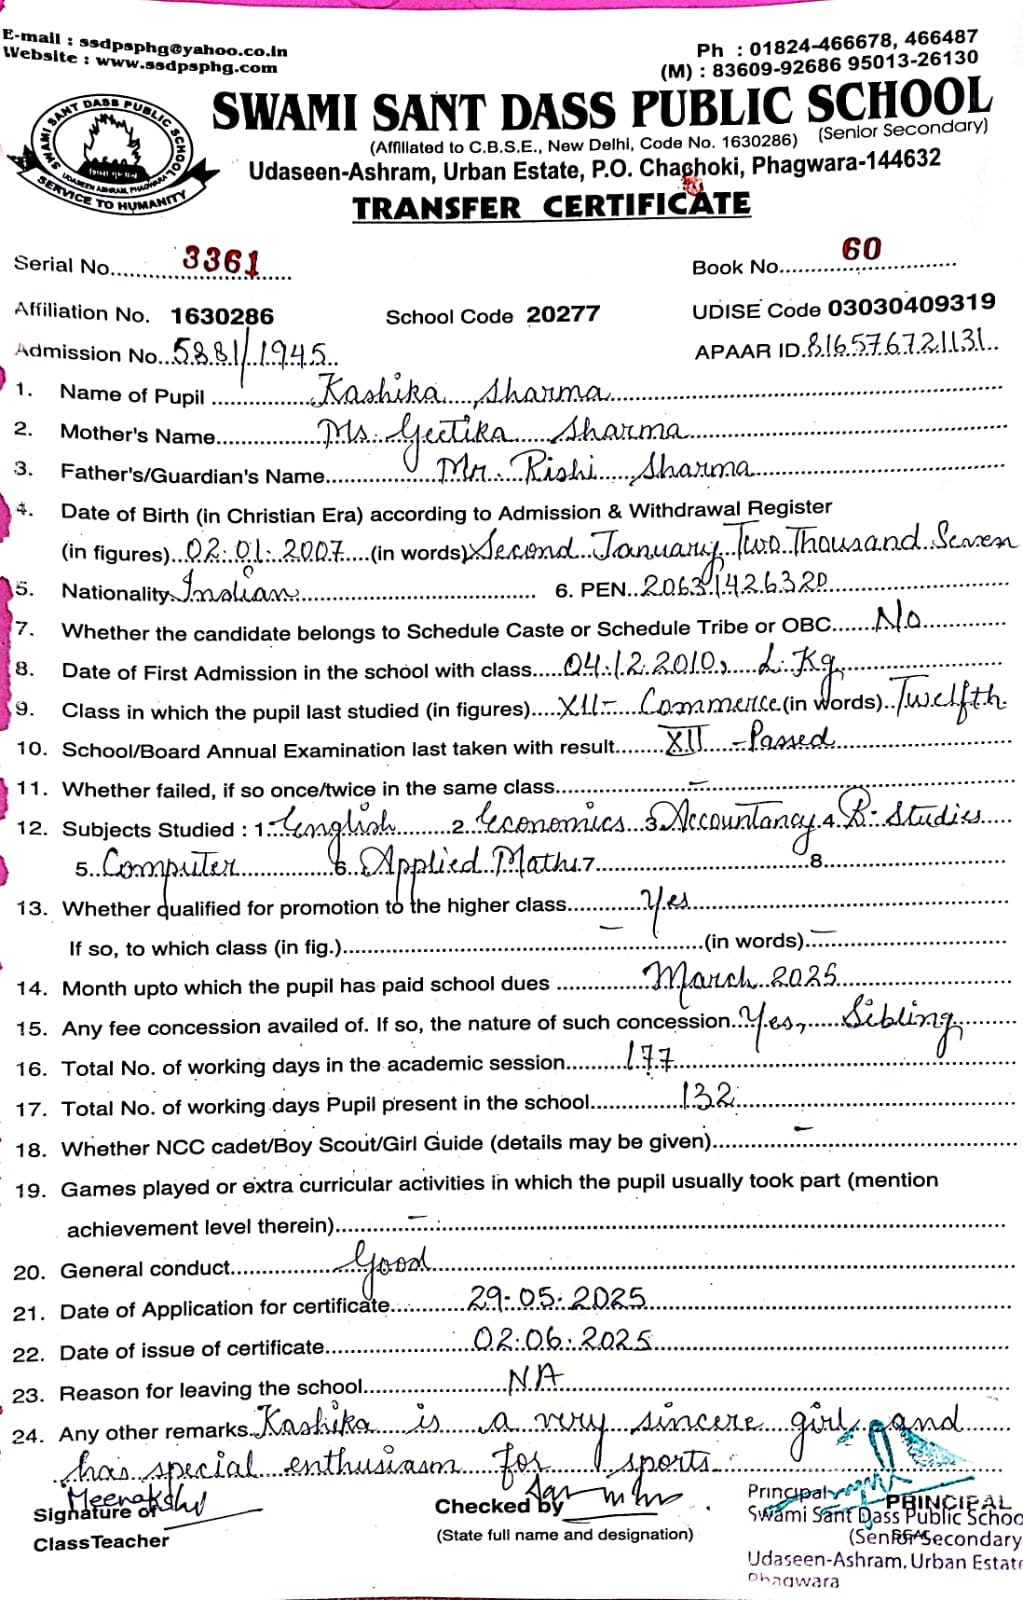 E-mail : ssdpsphg@yahoo.co.in
Website : www.ssdpsphg.com
Ph : 01824-466678, 466487
(M) : 83609-92686 95013-26130
SWAMI SANT DASS PUBLIC SCHOOL
SWAMI SANT DASS PUBLIC SCHOOL
UDASEEN ASHRAM, PHAGWARA
SERVICE TO HUMANITY
(Affiliated to C.B.S.E., New Delhi, Code No. 1630286) (Senior Secondary)
Udaseen-Ashram, Urban Estate, P.O. Chachoki, Phagwara-144632
TRANSFER CERTIFICATE
Serial No. 3361 Book No. 60
Affiliation No. 1630286 School Code 20277 UDISE Code 03030409319
Admission No. 5881/1945 APAAR ID. 816576721131
1. Name of Pupil Kashika Sharma
2. Mother's Name Ms. Geetika Sharma
3. Father's/Guardian's Name Mr. Rishi Sharma
4. Date of Birth (in Christian Era) according to Admission & Withdrawal Register
(in figures) 02.01.2007 (in words) Second January Two Thousand Seven
5. Nationality Indian 6. PEN. 20631426320
7. Whether the candidate belongs to Schedule Caste or Schedule Tribe or OBC No
8. Date of First Admission in the school with class 04.12.2010, L.Kg
9. Class in which the pupil last studied (in figures) XII- Commerce (in words) Twelfth.
10. School/Board Annual Examination last taken with result XII -Passed
11. Whether failed, if so once/twice in the same class –
12. Subjects Studied : 1. English 2. Economics 3. Accountancy 4. B. Studies
5. Computer 6. Applied Maths 7. 8.
13. Whether qualified for promotion to the higher class Yes
If so, to which class (in fig.) – (in words) –
14. Month upto which the pupil has paid school dues March 2025
15. Any fee concession availed of. If so, the nature of such concession Yes, Sibling
16. Total No. of working days in the academic session 177
17. Total No. of working days Pupil present in the school 132
18. Whether NCC cadet/Boy Scout/Girl Guide (details may be given) –
19. Games played or extra curricular activities in which the pupil usually took part (mention
achievement level therein) –
20. General conduct Good
21. Date of Application for certificate 29.05.2025
22. Date of issue of certificate 02.06.2025
23. Reason for leaving the school NA
24. Any other remarks Kashika is a very sincere girl and
has special enthusiasm for sports
Meenakshi
Signature of
Class Teacher
Checked by
(State full name and designation)
Principal PRINCIPAL
Swami Sant Dass Public Schoo
(Senior Secondary
Udaseen-Ashram, Urban Estate
Phagwara